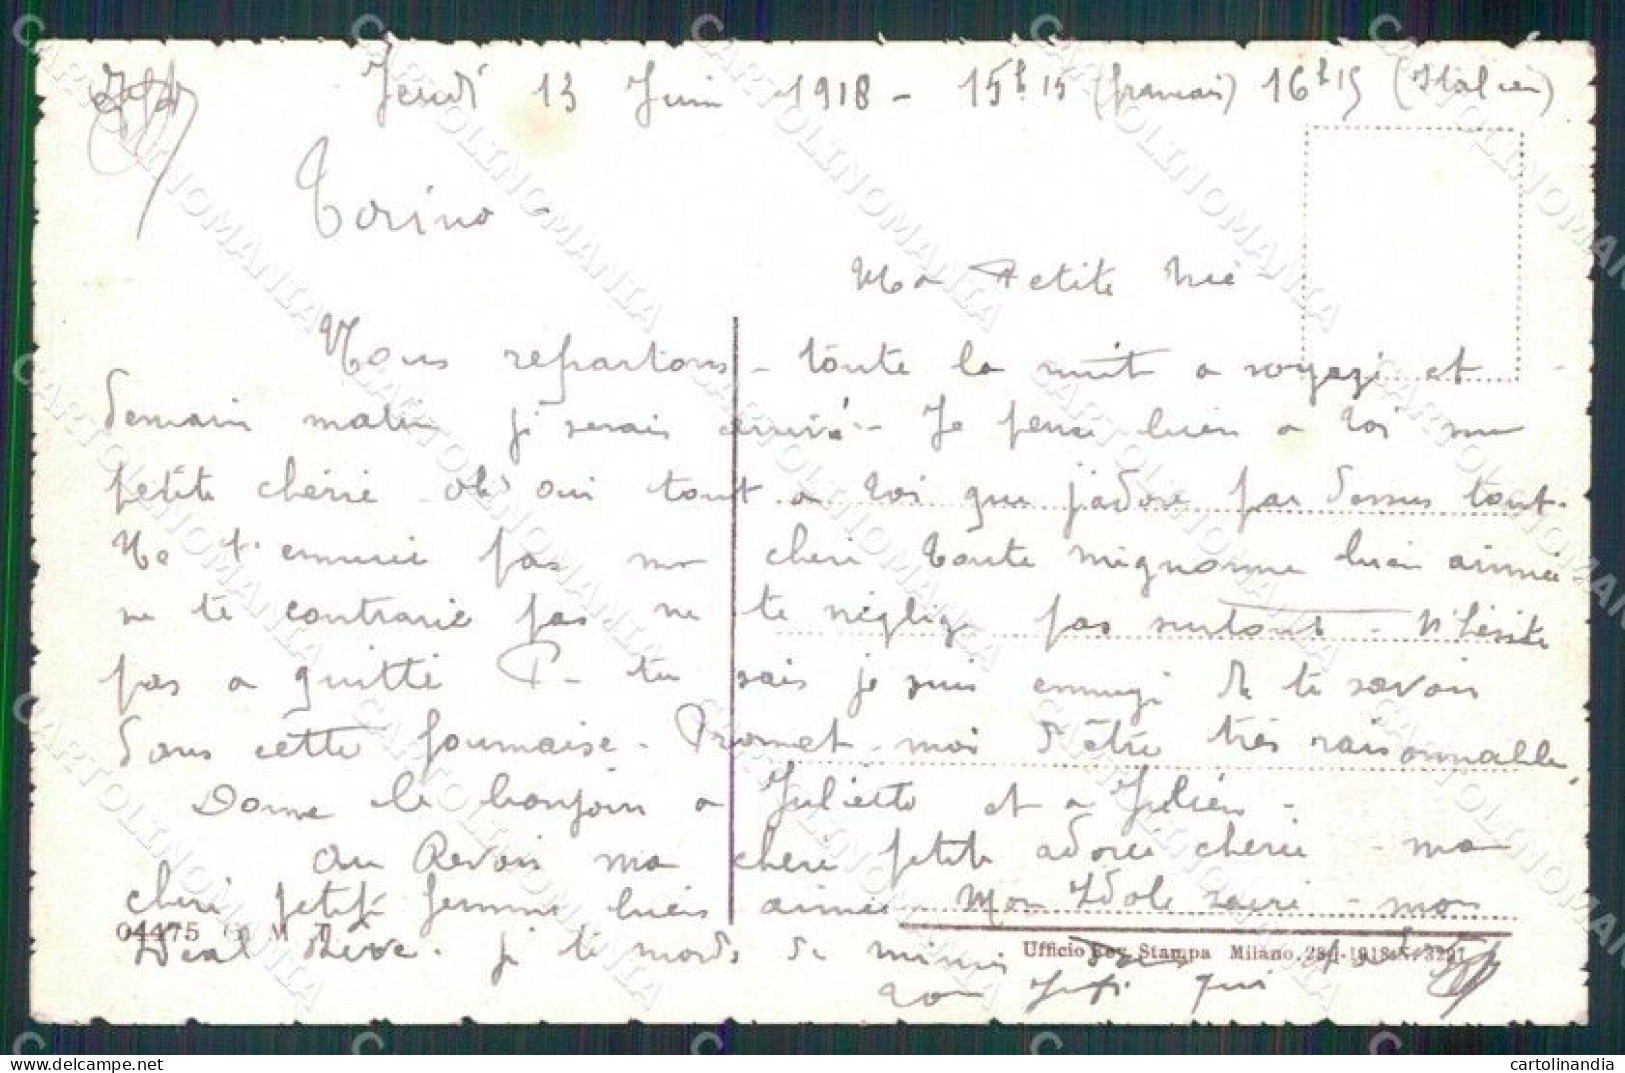 Jeudi 13 Juin 1918 - 15h.15 (francais) 16h15 (Italien)
Torino -
Ma Petite
Nous repartons - toute la nuit a voyagé et
demain matin je serais arrivé - Je pense bien a toi ma
petite chérie oh oui tout a toi que j'adore par dessus tout.
Ne t'ennuie pas ma cheri toute mignonne bien aimée
ne te contrarie pas ne te néglige pas surtout - N'hésite
pas a quitté P - tu sais je suis ennuyé de te savoir
dans cette fournaise - Promet-moi d'être très raisonnable,
Donne le bonjour a Juliette et a Julien -
Au Revoir ma cheri petite adorée cherie - ma
cheri petite femme bien aimée - Mon Idole - mon
04475 G M T
Ideal Rêve. je te mords de mimis
Ufficio Rev. Stampa Milano, 28-1-1918 N. 3291
ton
cartolinandia
CARTOLINOMANIA